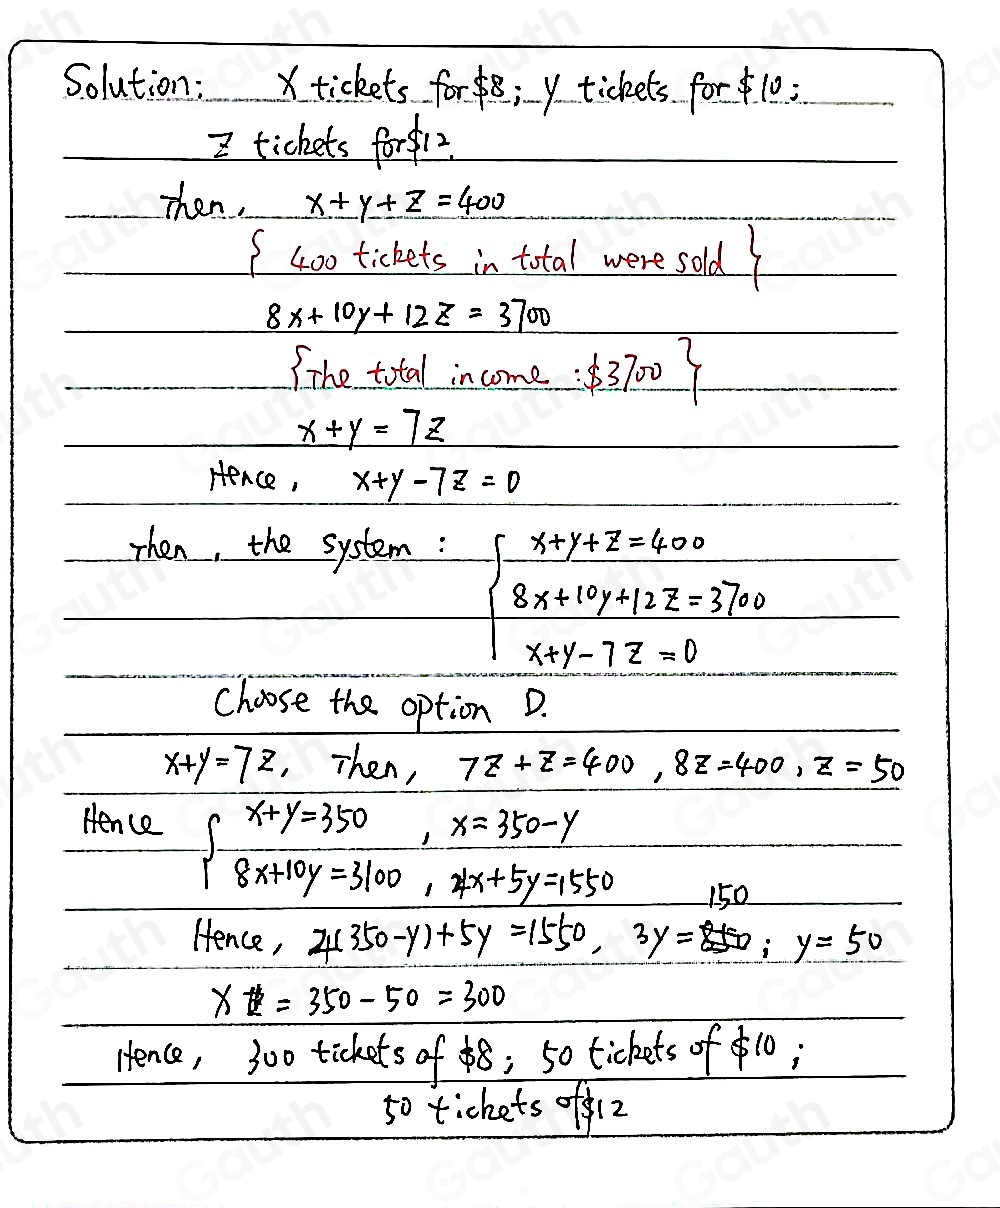 Solution: X tickets for $8; y tickets for $10;
Z tickets for $12.
Then, x+y+z=400
{ 400 tickets in total were sold }
8x+10y+12z = 3700
{The total income :$3700 }
x+y = 7z
Hence, x+y-7z = 0
Then, the system : { x+y+z=400
8x+10y+12z=3700
x+y-7z=0
Choose the option D.
x+y=7z, Then, 7z+z=400, 8z=400, z=50
Hence { x+y=350 , x=350-y
8x+10y=3100 , 4x+5y=1550
150
Hence, 4(350-y)+5y=1550, 3y= ; y=50
X = 350-50 = 300
Hence, 300 tickets of $8; 50 tickets of $10;
50 tickets of $12
Gauth